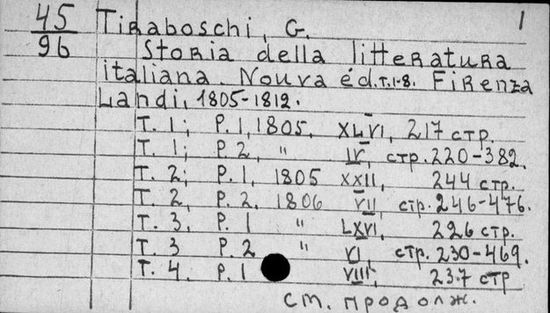 45 Tiraboschi, G. 1
96 Storia della litteratura
italiana. Nouva éd. T. 1-8. Firenza
Landi, 1805-1812.
T. 1; P. 1, 1805. XLVI, 217 стр.
T. 1; P. 2, " IV, стр. 220-382.
T. 2; P. 1, 1805 XXII, 244 стр.
T. 2, P. 2. 1806 VII, стр. 246-476.
T. 3, P. 1 " LXVI, 226 стр.
T. 3 P. 2 " VI, стр. 230-469.
T. 4. P. 1 VIII, 237 стр
см. продолж.